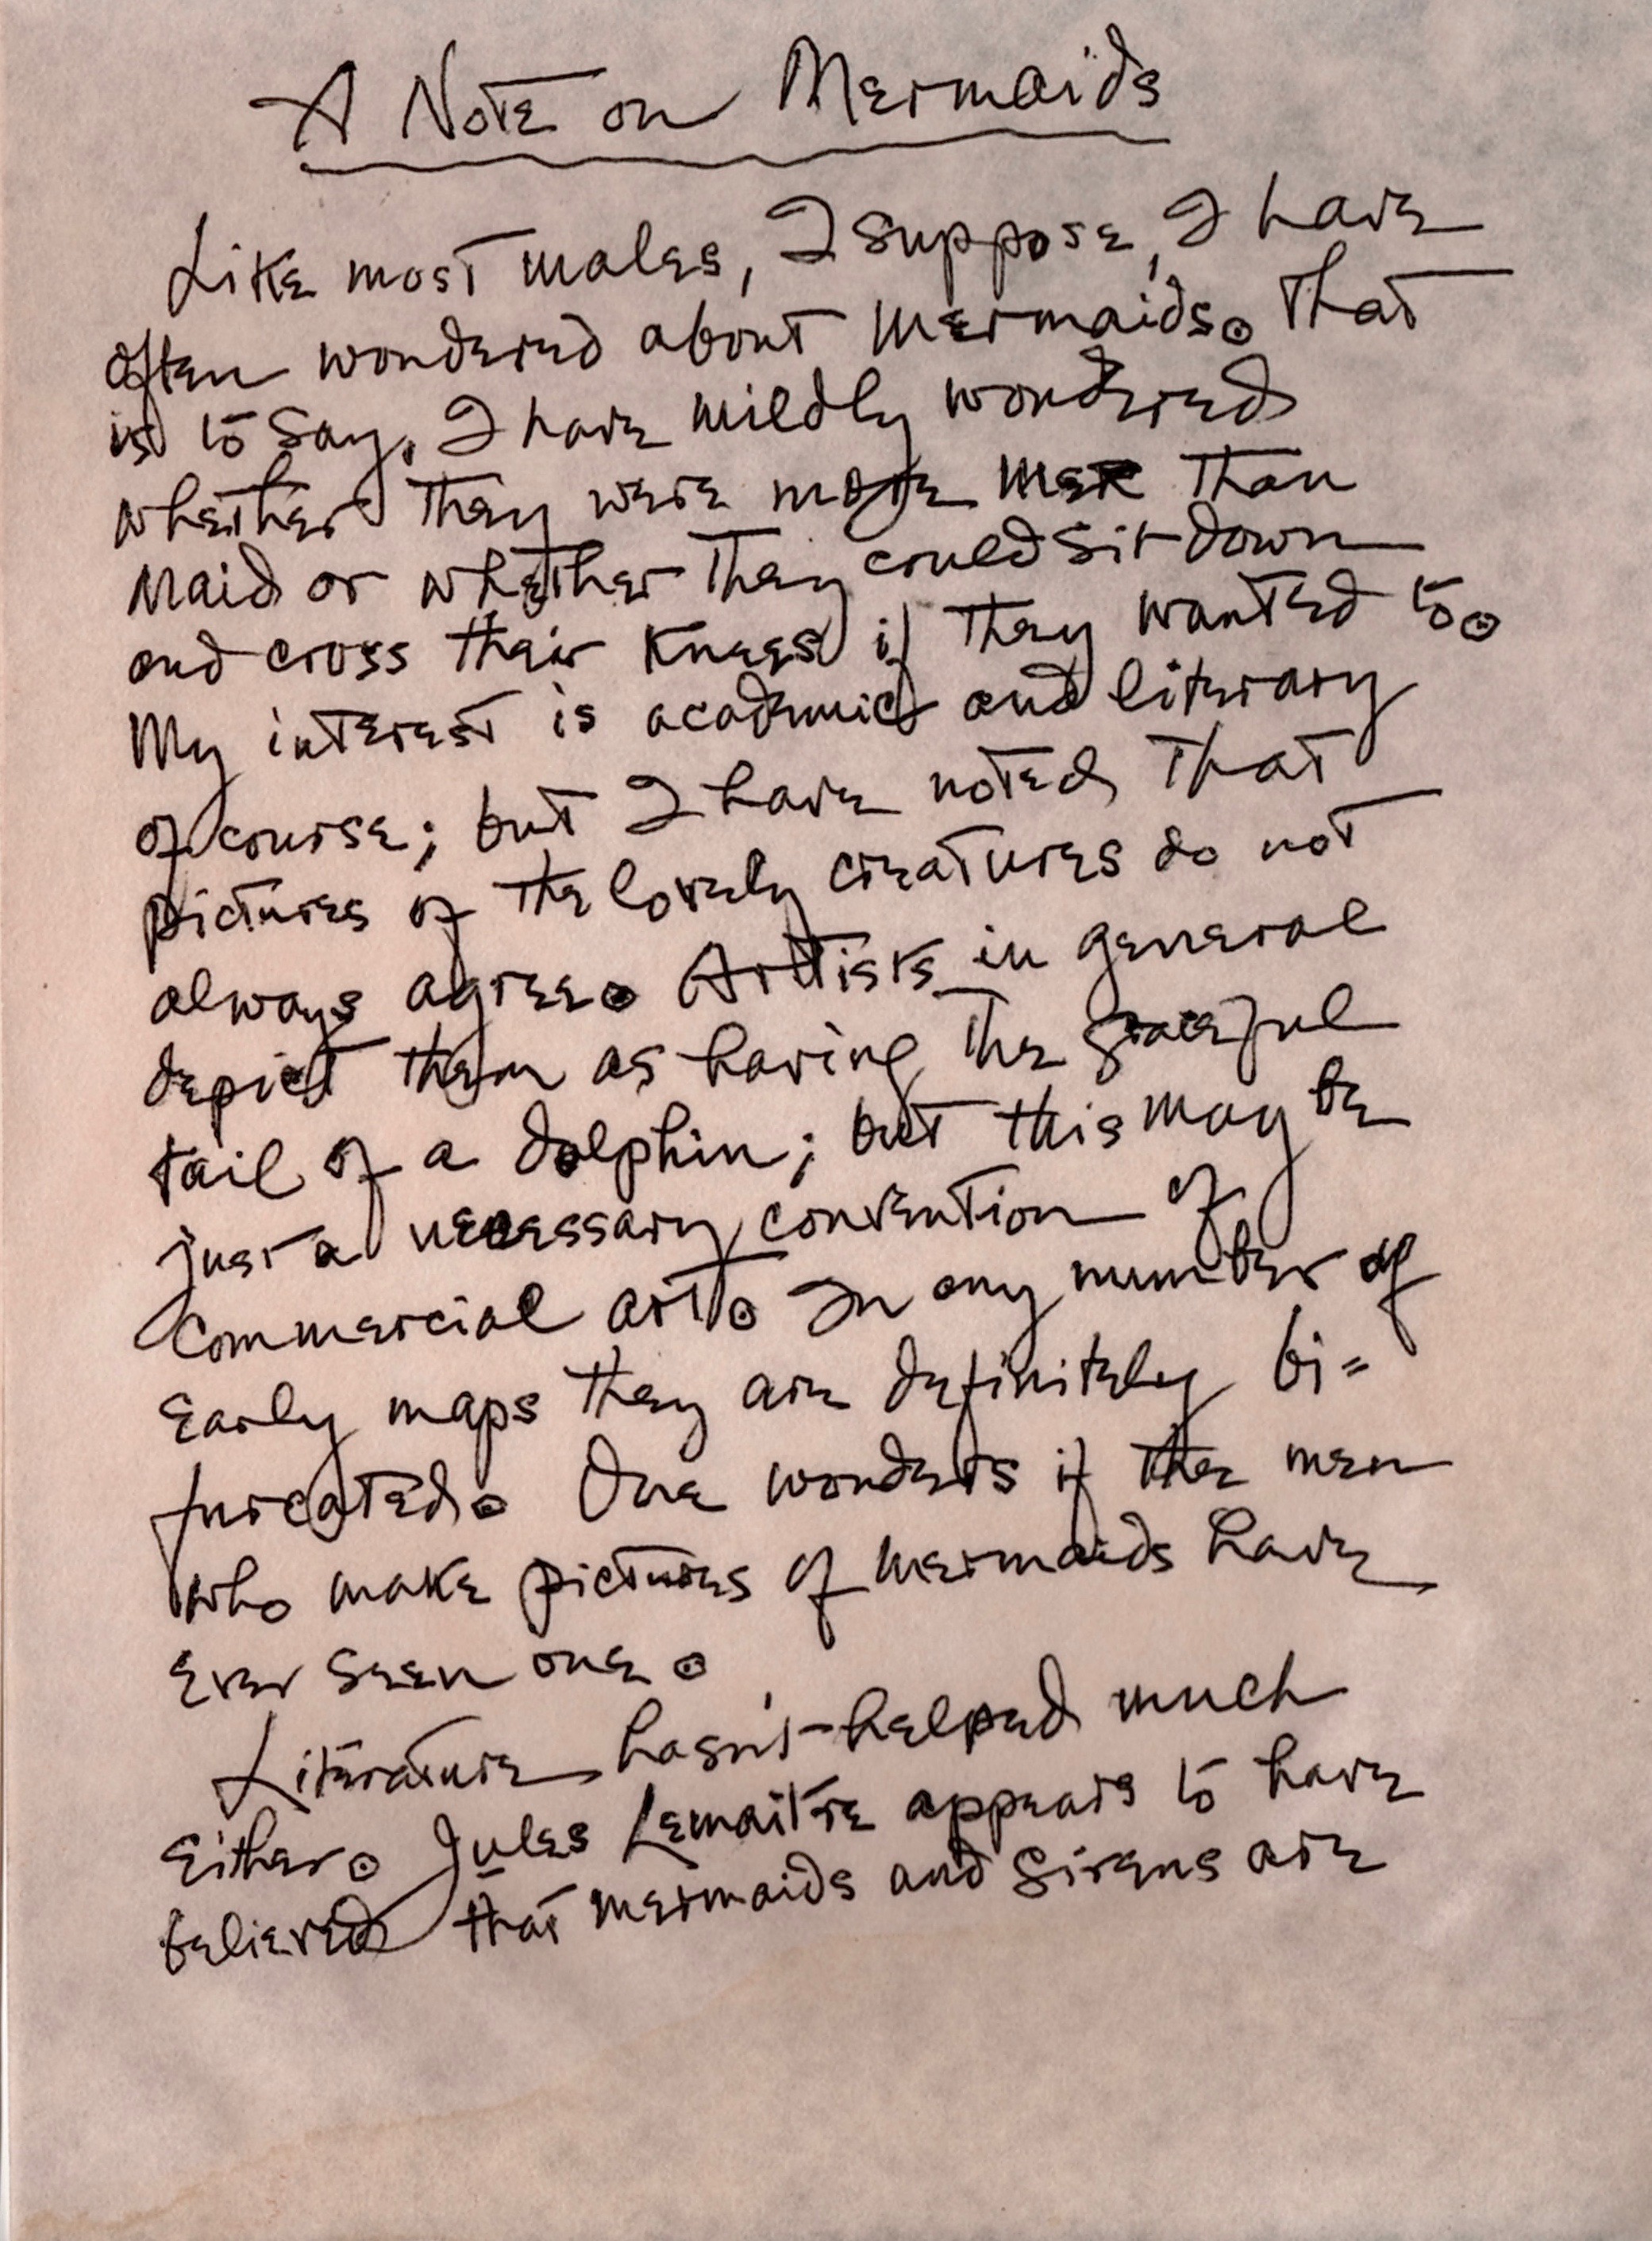 A Note on Mermaids
Like most males, I suppose, I have
often wondered about mermaids. That
is to say, I have mildly wondered
whether they were more mer than
maid or whether they could sit down
and cross their knees if they wanted to.
My interest is academic and literary
of course; but I have noted that
pictures of the lovely creatures do not
always agree. Artists in general
depict them as having the graceful
tail of a dolphin; but this may be
just a necessary convention of
commercial art. In any number of
early maps they are definitely bi=
furcated. One wonders if the men
who make pictures of mermaids have
ever seen one.
Literature hasn't helped much
either. Jules Lemaitre appears to have
believed that mermaids and sirens are